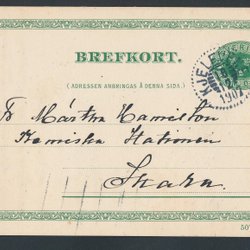 BREFKORT.
(ADRESSEN ANBRINGAS Å DENNA SIDA.)
Fr Märtha Hamilton
Kemiska Stationen
Skara.